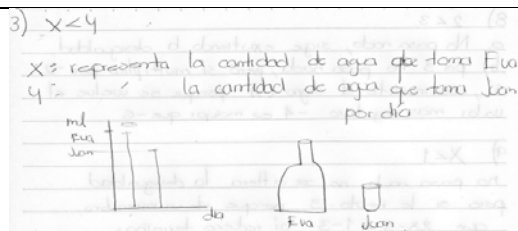 3) X<y
X: representa la cantidad de agua que toma Eva
y = " la cantidad de agua que toma Juan
por día
ml
Eva
Juan
dia
Eva Juan